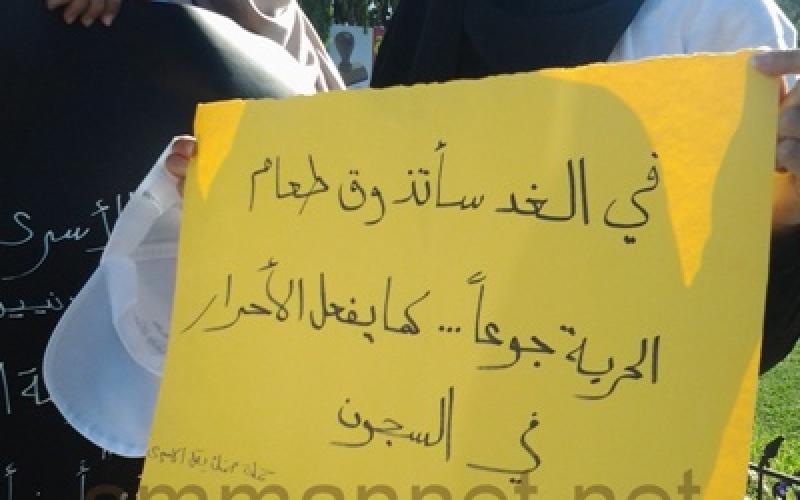 في الغد سأتذوق طعام
الحرية جوعاً... كما يفعل الأحرار
في السجون
الأسرى
ammannet.net